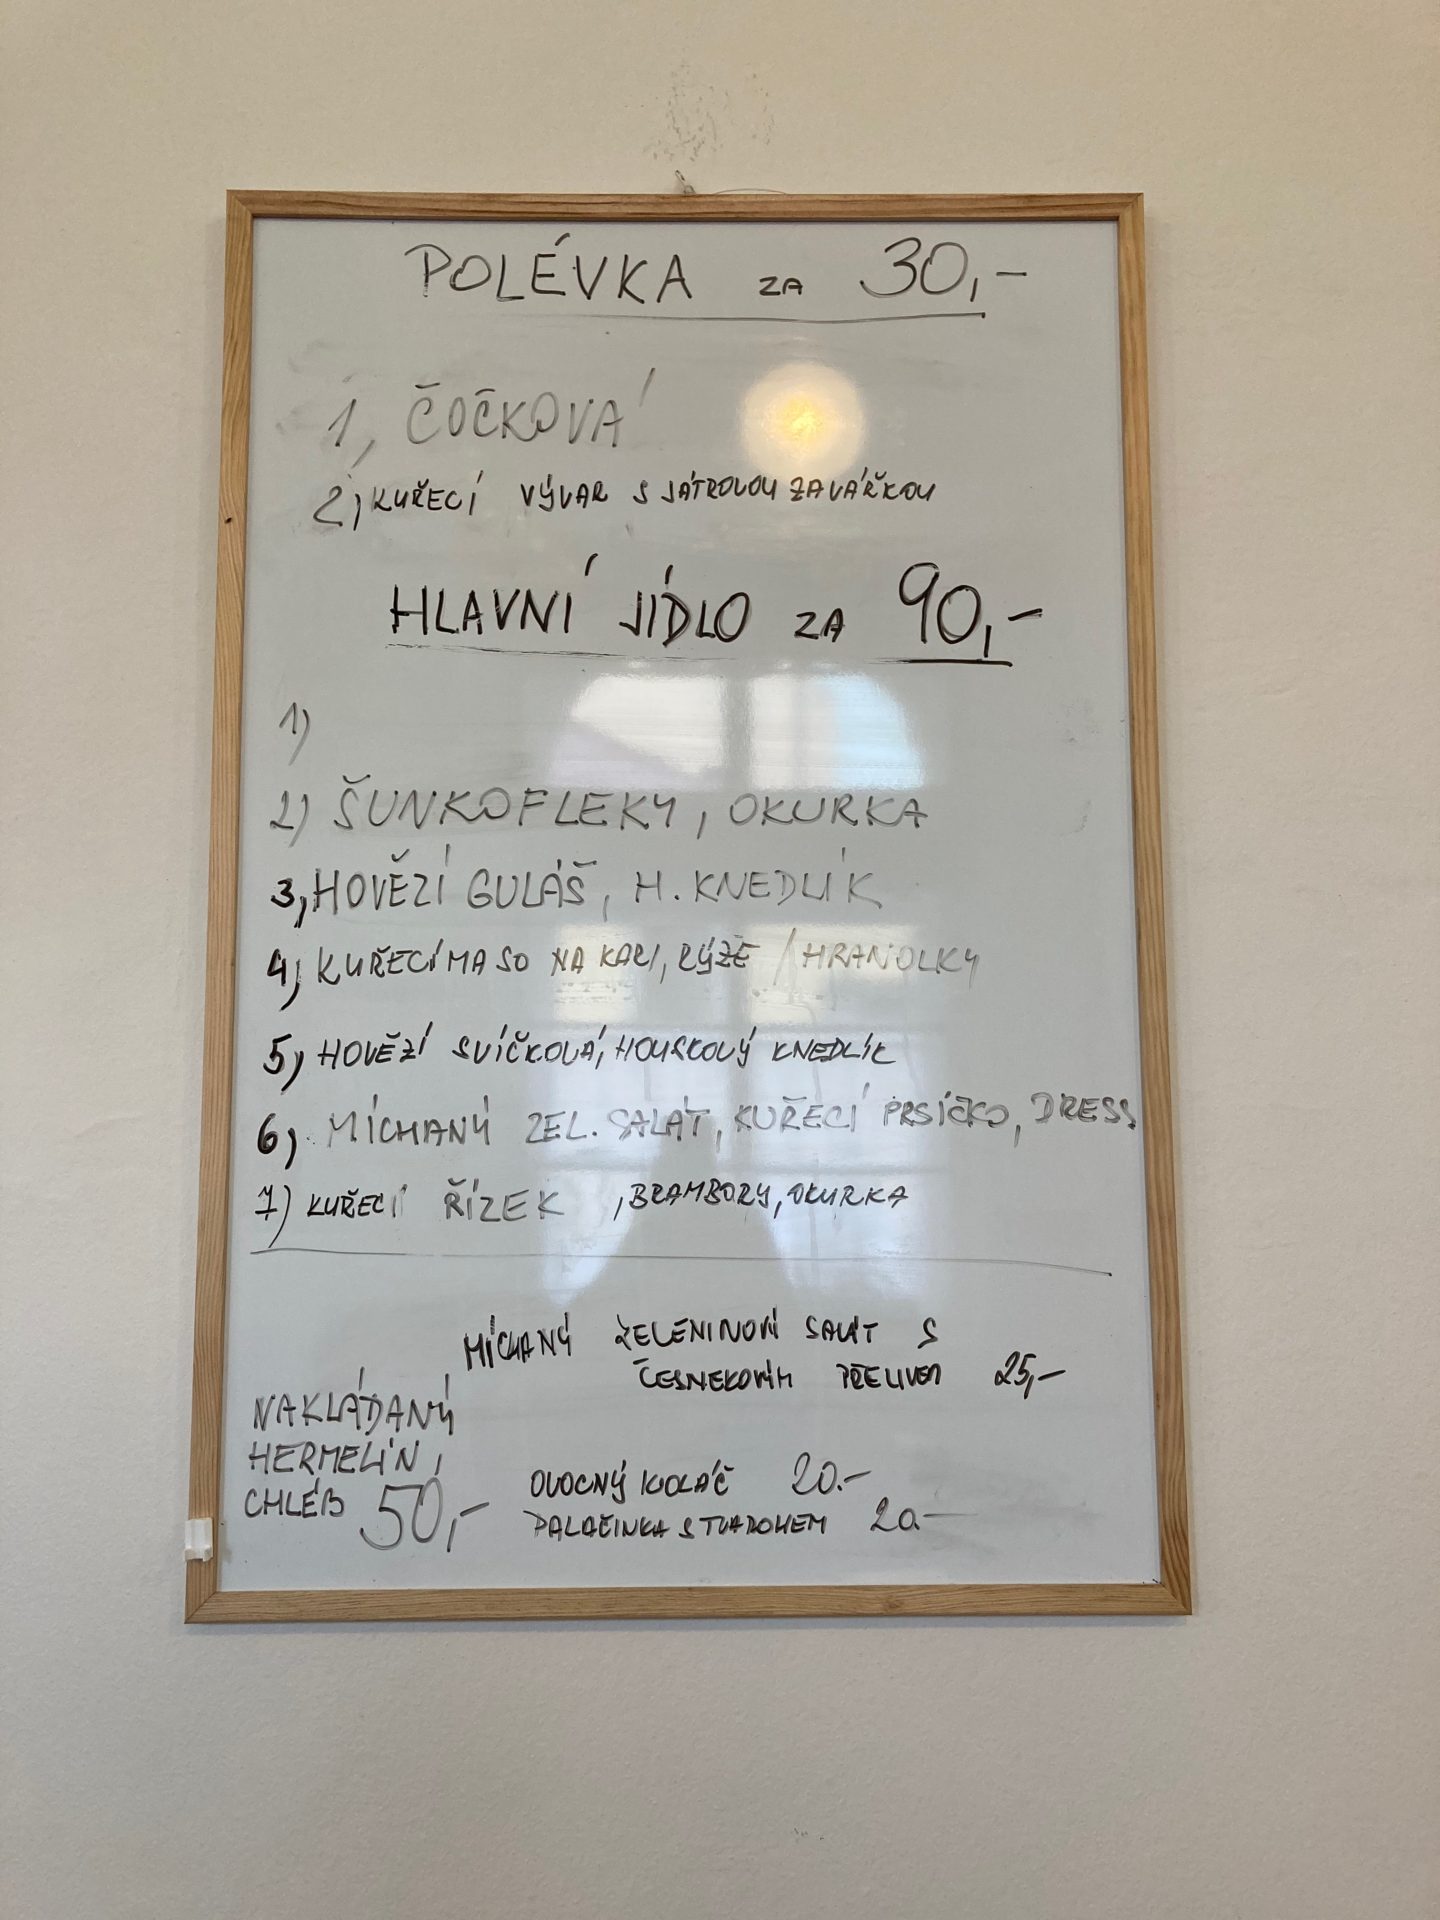 POLÉVKA ZA 30,-
1, ČOČKOVÁ
2, KUŘECÍ VÝVAR S JÁTROVOU ZAVÁŘKOU
HLAVNÍ JÍDLO ZA 90,-
1)
2) ŠUNKOFLEKY, OKURKA
3, HOVĚZÍ GULÁŠ, H. KNEDLÍK
4, KUŘECÍ MASO NA KARI, RÝŽE / HRANOLKY
5, HOVĚZÍ SVÍČKOVÁ, HOUSKOVÝ KNEDLÍK
6, MÍCHANÝ ZEL. SALÁT, KUŘECÍ PRSÍČKO, DRESS
7) KUŘECÍ ŘÍZEK , BRAMBORY, OKURKA
MÍCHANÝ ZELENINOVÝ SALÁT S
ČESNEKOVÝM PŘELIVEM 25,-
NAKLÁDANÝ
HERMELÍN,
CHLÉB 50,-
OVOCNÝ KOLÁČ 20.-
PALAČINKA S TVAROHEM 20.-